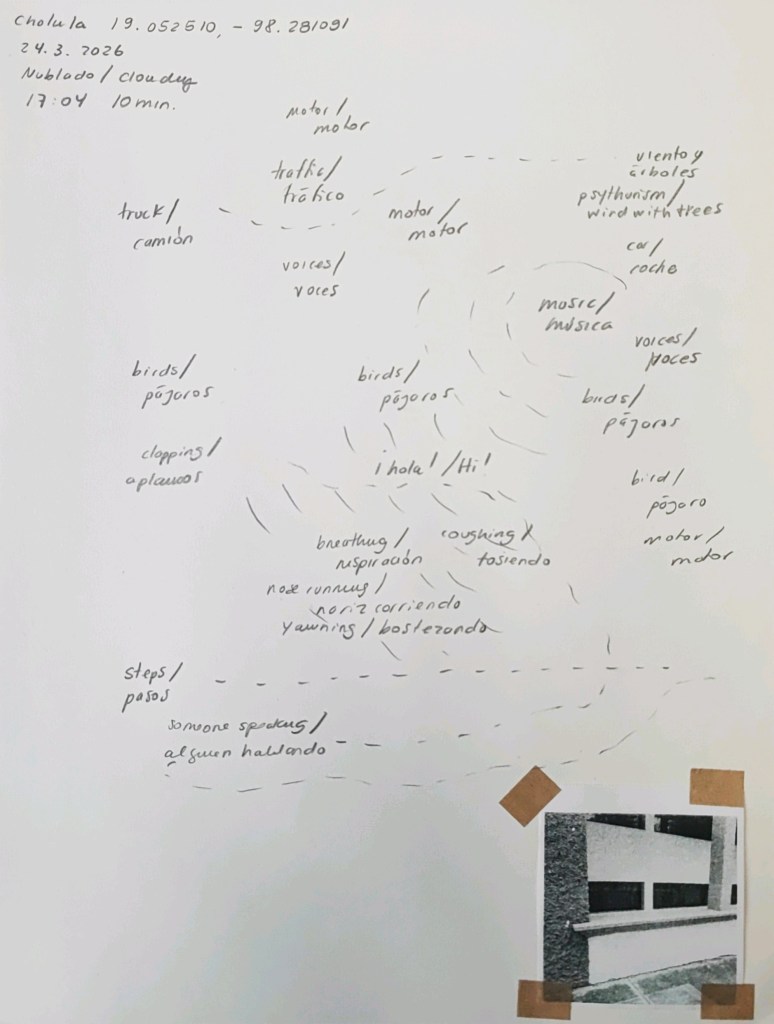 Cholula 19.052510, - 98.281091
24.3.2026
Nublado / cloudy
17:04 10 min.
motor /
motor
traffic /
tráfico
viento y
árboles
psythurism /
wind with trees
truck /
camión
motor /
motor
car /
coche
voices /
voces
music /
música
voices /
voces
birds /
pájaros
birds /
pájaros
birds /
pájaros
clapping /
aplausos
¡hola! / Hi!
bird /
pájaro
motor /
motor
breathing /
respiración
coughing /
tosiendo
nose running /
nariz corriendo
yawning / bostezando
steps /
pasos
someone speaking /
alguien hablando